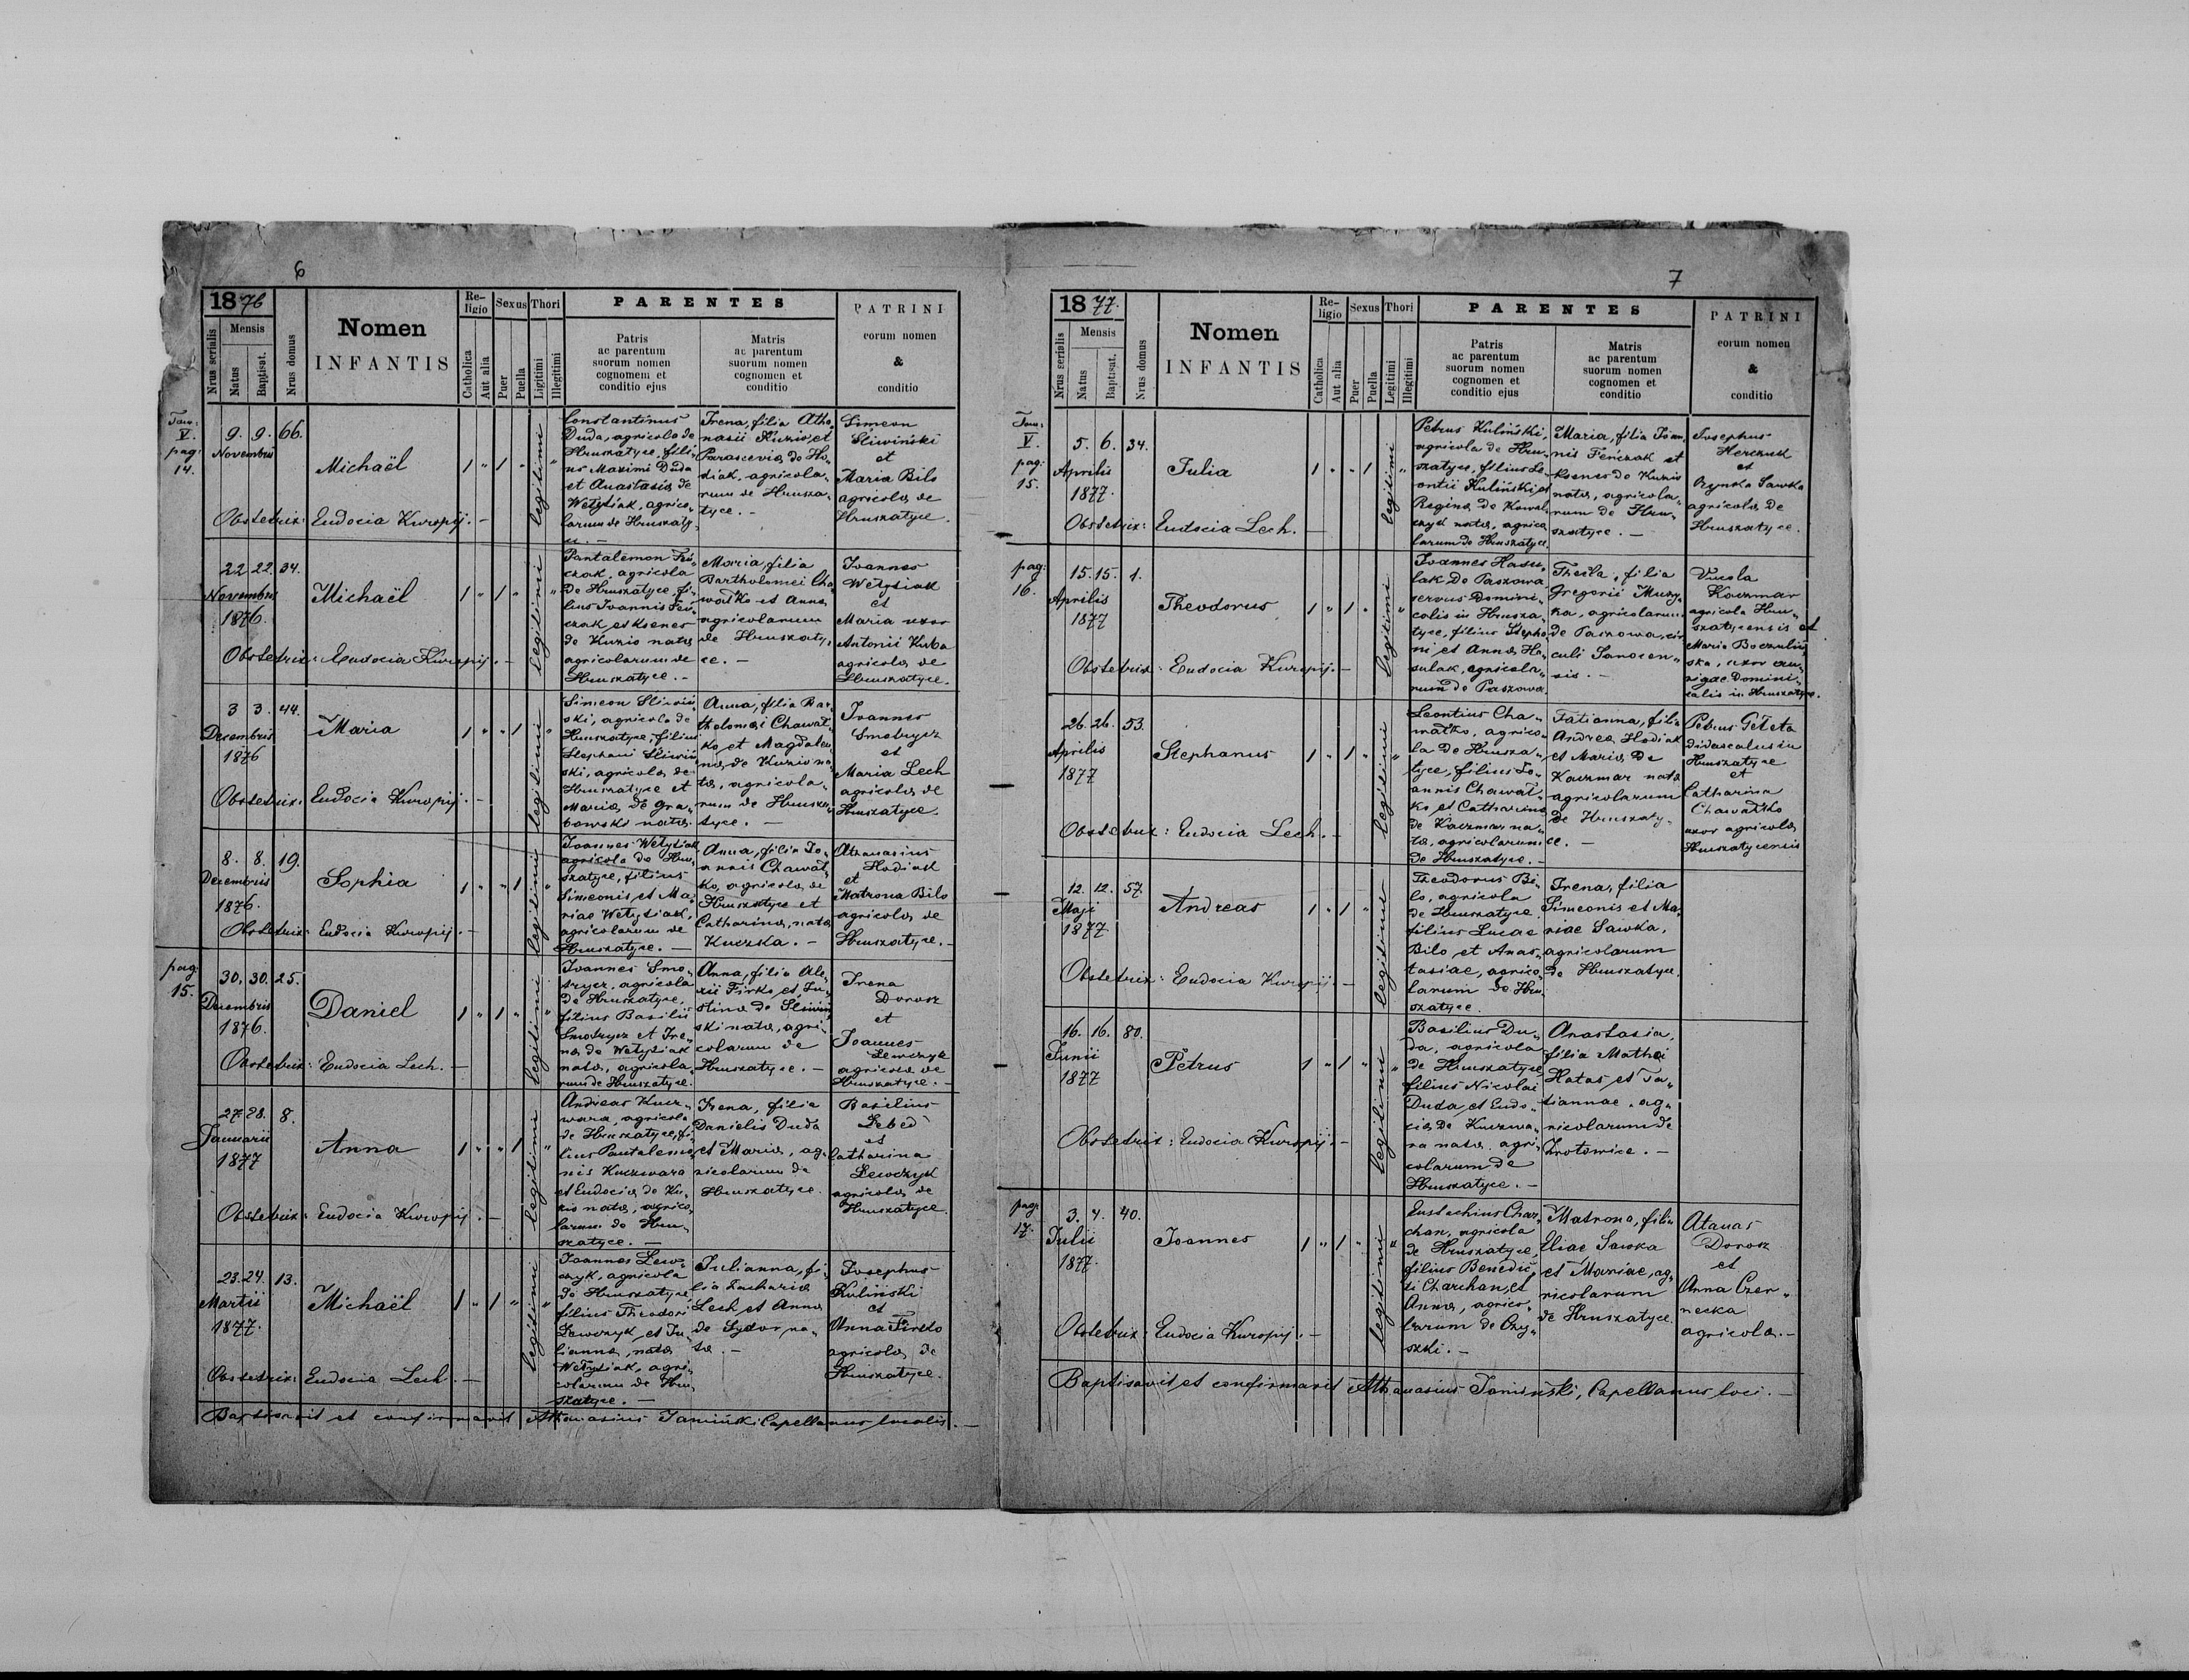 6
1876
Nrus serialis
Mensis
Natus
Baptisat.
Nrus domus
Nomen
INFANTIS
Re-
ligio
Catholica
Aut alia
Sexus
Puer
Puella
Thori
Ligitimi
Illegitimi
PARENTES
Patris
ac parentum
suorum nomen
cognomen et
conditio ejus
Matris
ac parentum
suorum nomen
cognomen et
conditio
PATRINI
eorum nomen
&
conditio
Tom:
V.
pag:
14.
9. 9. 66.
Novembris
Michaël
1 " 1 " legitimi "
Constantinus
Duda, agricola de
Hruszatyce, fili-
us Maximi Duda
et Anastasia de
Wetysiak, agrico-
larum de Hruszaty-
ce. -
Irena, filia Atha-
nasii Kuzio, et
Parascevia de Ho-
diak, agricola-
rum de Hrusza-
tyce. -
Simeon
Śliwiński
et
Maria Bilo
agricola de
Hruszatyce.
Obstetrix: Eudocia Kuropij. -
22 22. 34.
Novembris
1876.
Michaël
1 " 1 " legitimi "
Pantalemon Feń-
czak, agricola
de Hruszatyce, fi-
lius Joannis Feń-
czak et Ksenes
de Kuzio nata
agricolarum de
Hruszatyce. -
Maria, filia
Bartholomei Cha-
wałko et Anna
agricolarum
de Hruszaty-
ce. -
Joannes
Wetysiak
et
Maria uxor
Antonii Kuba
agricola de
Hruszatyce.
Obstetrix: Eudocia Kuropij. -
3 3. 44.
Decembris
1876
Maria
1 " " 1 legitimi "
Simeon Śliwiń-
ski, agricola de
Hruszatyce, filius
Stephani Śliwiń-
ski, agricola de
Hruszatyce et
Maria de Gra-
bowski nata.
Anna, filia Bar-
tholomei Chawał-
ko, et Magdale-
na, de Kuzio na-
ta, agricola-
rum de Hrusza-
tyce. -
Joannes
Smotrycz
et
Maria Lech
agricola de
Hruszatyce.
Obstetrix: Eudocia Kuropij. -
8. 8. 19.
Decembris
1876.
Sophia
1 " " 1 legitimi "
Joannes Wetysiak
agricola de Hru-
szatyce, filius
Simeonis et Ma-
riae Wetysiak,
agricolarum de
Hruszatyce. -
Anna, filia Jo-
annis Chawał-
ko, agricola de
Hruszatyce et
Catharina, nata
Kuczka. -
Athanasius
Hodiak
et
Matrona Bilo
agricola de
Hruszatyce. -
Obstetrix: Eudocia Kuropij. -
pag:
15.
30. 30. 25.
Decembris
1876.
Daniel
1 " 1 " legitimi "
Joannes Smo-
trycz, agricola
de Hruszatyce,
filius Basilii
Smotrycz et Ire-
na de Wetysiak
nata, agricola-
rum de Hruszatyce.
Anna, filia Ale-
xii Firko, et Ju-
stina de Śliwiń-
ski nata, agri-
colarum de
Hruszatyce. -
Irena
Dorosz
et
Joannes
Lewczyk
agricola de
Hruszatyce. -
Obstetrix: Eudocia Lech. -
27. 28. 8.
Januarii
1877
Anna
1 " " 1 legitimi "
Andreas Kucz-
wara, agricola
de Hruszatyce, fi-
lius Pantalemo-
nis Kuczwara
et Eudocia de Ku-
zio nata, agrico-
larum de Hru-
szatyce. -
Irena, filia
Danielis Duda
et Maria, ag-
ricolarum de
Hruszatyce.
Basilius
Lebed
et
Catharina
Lewczyk
agricola de
Hruszatyce.
Obstetrix: Eudocia Kuropij. -
23. 24. 13.
Martii
1877.
Michaël
1 " 1 " legitimi "
Joannes Lew-
czyk, agricola
de Hruszatyce
filius Theodori
Lewczyk, et Ju-
lianna, nata
Wetysiak, agri-
colarum de Hru-
szatyce. -
Julianna, fi-
lia Zacharia
Lech et Anna
de Sydor na-
ta. -
Josephus
Kuliński
et
Anna Firko
agricola de
Hruszatyce.
Obstetrix: Eudocia Lech. -
Baptisavit et confirmavit Athanasius Jamiński Capellanus localis. -
7
1877.
Nrus serialis
Mensis
Natus
Baptisat.
Nrus domus
Nomen
INFANTIS
Re-
ligio
Catholica
Aut alia
Sexus
Puer
Puella
Thori
Legitimi
Illegitimi
PARENTES
Patris
ac parentum
suorum nomen
cognomen et
conditio ejus
Matris
ac parentum
suorum nomen
cognomen et
conditio
PATRINI
eorum nomen
&
conditio
Tom:
V.
pag:
15.
5. 6. 34.
Aprilis
1877.
Julia
1 " " 1 legitimi "
Petrus Kuliński,
agricola de Hru-
szatyce, filius Le-
ontii Kuliński et
Regina de Kowal-
czyk nata, agrico-
larum de Hruszatyce.
Maria, filia Joan-
nis Feńczak et
Ksenes de Kuzio
nata, agricola-
rum de Hru-
szatyce. -
Josephus
Herczuk
et
Oryna Sawka
agricola de
Hruszatyce.
Obstetrix: Eudocia Lech. -
pag:
16.
15. 15. 1.
Aprilis
1877
Theodorus
1 " 1 " legitimi "
Joannes Hasu-
lak de Paszowa
servus Domini-
calis in Hrusza-
tyce, filius Stepha-
ni et Anna Ha-
sulak, agricola-
rum de Paszowa.
Thecla, filia
Gregorii Muzy-
ka, agricolarum
de Paszowa, cir-
culi Sanocen-
sis. -
Vucola
Kaczmar
agricola Hru-
szatycensis et
Maria Boczuliń-
ska, uxor au-
rigae Domini-
calis in Hruszatyce.
Obstetrix: Eudocia Kuropij. -
26. 26. 53.
Aprilis
1877
Stephanus
1 " 1 " legitimi "
Leontius Cha-
wałko, agrico-
la de Hrusza-
tyce, filius Jo-
annis Chawał-
ko et Catharina
de Kaczmar na-
ta, agricolarum
de Hruszatyce. -
Tatianna, filia
Andrea Hodiak
et Maria de
Kaczmar nata
agricolarum
de Hruszaty-
ce. -
Petrus Geleta
didascalus in
Hruszatyce
et
Catharina
Chawałko
uxor agricola
Hruszatycensis
Obstetrix: Eudocia Lech. -
12. 12. 57.
Maji
1877
Andreas
1 " 1 " legitimi "
Theodorus Bi-
lo, agricola
de Hruszatyce,
filius Lucae
Bilo et Anas-
tasiae, agrico-
larum de Hru-
szatyce.
Irena, filia
Simeonis et Ma-
riae Sawka,
agricolarum
de Hruszatyce.
Obstetrix: Eudocia Kuropij. -
16. 16. 80.
Junii
1877
Petrus
1 " 1 " legitimi "
Basilius Du-
da, agricola
de Hruszatyce,
filius Nicolai
Duda, et Eudo-
cia de Kuzwa-
ra nata, agri-
colarum de
Hruszatyce. -
Anastasia,
filia Mathei
Hatas et Ta-
tiannae, ag-
ricolarum de
Zrotowice. -
Obstetrix: Eudocia Kuropij. -
pag:
17.
3. 4. 40.
Julii
1877.
Joannes
1 " 1 " legitimi "
Eustachius Char-
chan, agricola
de Hruszatyce,
filius Benedic-
ti Charchan, et
Anna, agrico-
larum de Czy-
szki. -
Matrona, filia
Eliae Sawka
et Mariae, ag-
ricolarum
de Hruszatyce.
Atanas
Dorosz
et
Anna Czer-
necka
agricola. -
Obstetrix: Eudocia Kuropij. -
Baptisavit et confirmavit Athanasius Jamiński, Capellanus loci. -